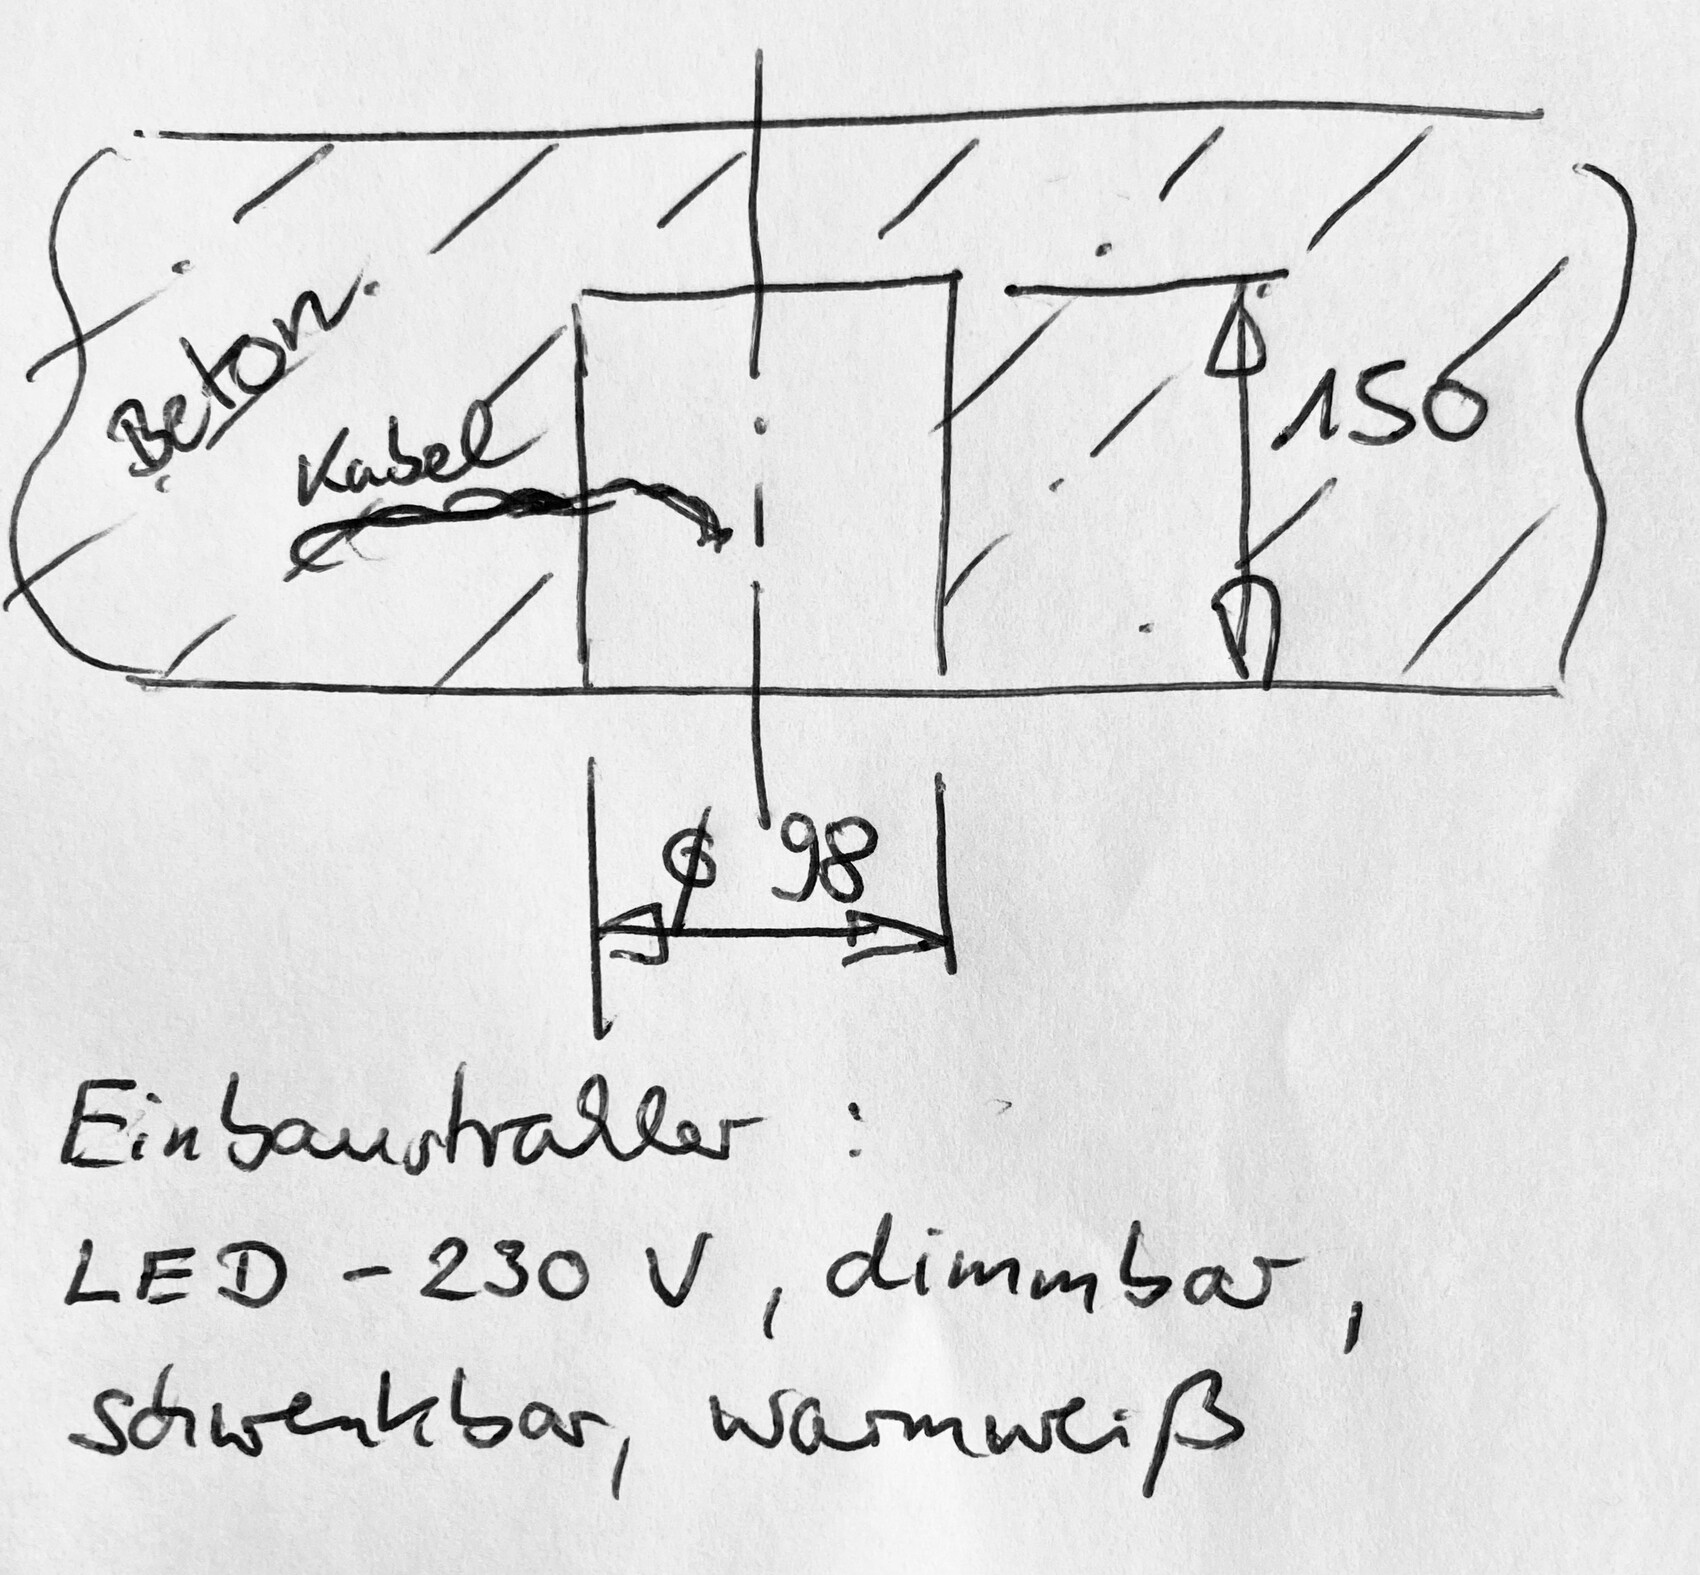 Beton
Kabel
150
⌀ 98
Einbaustrahler :
LED - 230 V, dimmbar,
schwenkbar, warmweiß